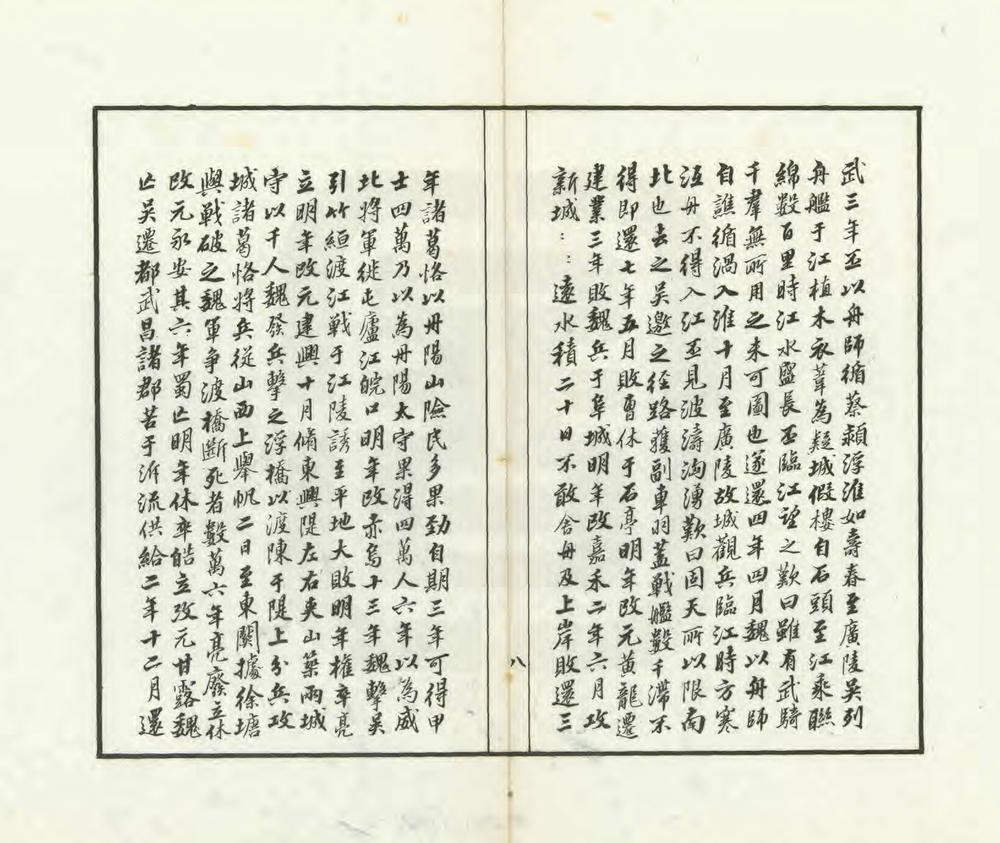 武三年丕以舟師循蔡潁浮淮如壽春至廣陵吳列
舟艦于江植木衣葦為疑城假樓自石頭至江乘聯
綿數百里時江水盛長丕臨江望之歎曰雖有武騎
千羣無所用之未可圖也遂還四年四月魏以舟師
自譙循渦入淮十月至廣陵故城觀兵臨江時方寒
冱舟不得入江丕見波濤洶湧歎曰固天所以限南
北也去之吳邀之径路獲副車羽蓋戰艦數千滯不
得即還七年五月敗曹休于石亭明年改元黃龍遷
建業三年敗魏兵于阜城明年改嘉禾二年六月攻
新城：：遠水積二十日不敢舍舟及上岸敗還三
年諸葛恪以丹陽山險民多果勁自期三年可得甲
士四萬乃以為丹陽太守果得四萬人六年以為威
北將軍徙屯廬江皖口明年改赤烏十三年魏擊吳
引竹絙渡江戰于江陵誘至平地大敗明年權卒亮
立明年改元建興十月脩東興隄左右夾山築兩城
守以千人魏發兵擊之浮橋以渡陳于隄上分兵攻
城諸葛恪將兵從山西上舉帆二日至東關據徐塘
與戰破之魏軍爭渡橋斷死者數萬六年亮廢立休
改元永安其六年蜀亡明年休卒皓立改元甘露魏
亡吳遷都武昌諸郡苦于泝流供給二年十二月還
八